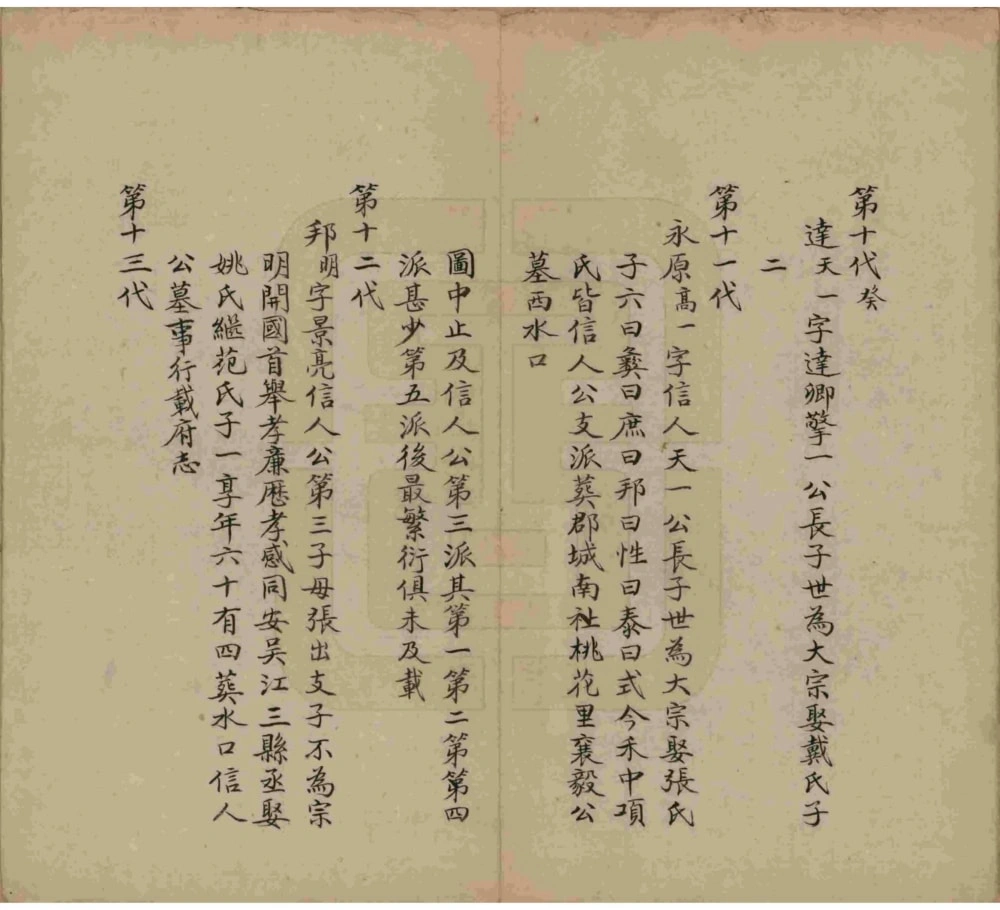 第十代癸
達天一字達卿擎一公長子世為大宗娶戴氏子
二
第十一代
永原高一字信人天一公長子世為大宗娶張氏
子六曰彝曰庶曰邦曰性曰泰曰式今禾中項
氏皆信人公支派葬郡城南社桃花里襄毅公
墓西水口
圖中止及信人公第三派其第一第二第第四
派甚少第五派後最繁衍俱未及載
第十二代
邦明字景亮信人公第三子母張出支子不為宗
明開國首舉孝廉歷孝感同安吳江三縣丞娶
姚氏繼范氏子一享年六十有四葬水口信人
公墓事行載府志
第十三代